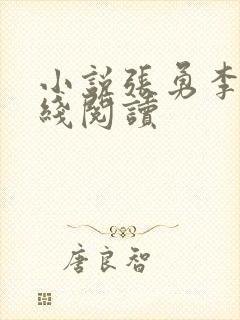 小説張勇李
綫閱讀
唐良智